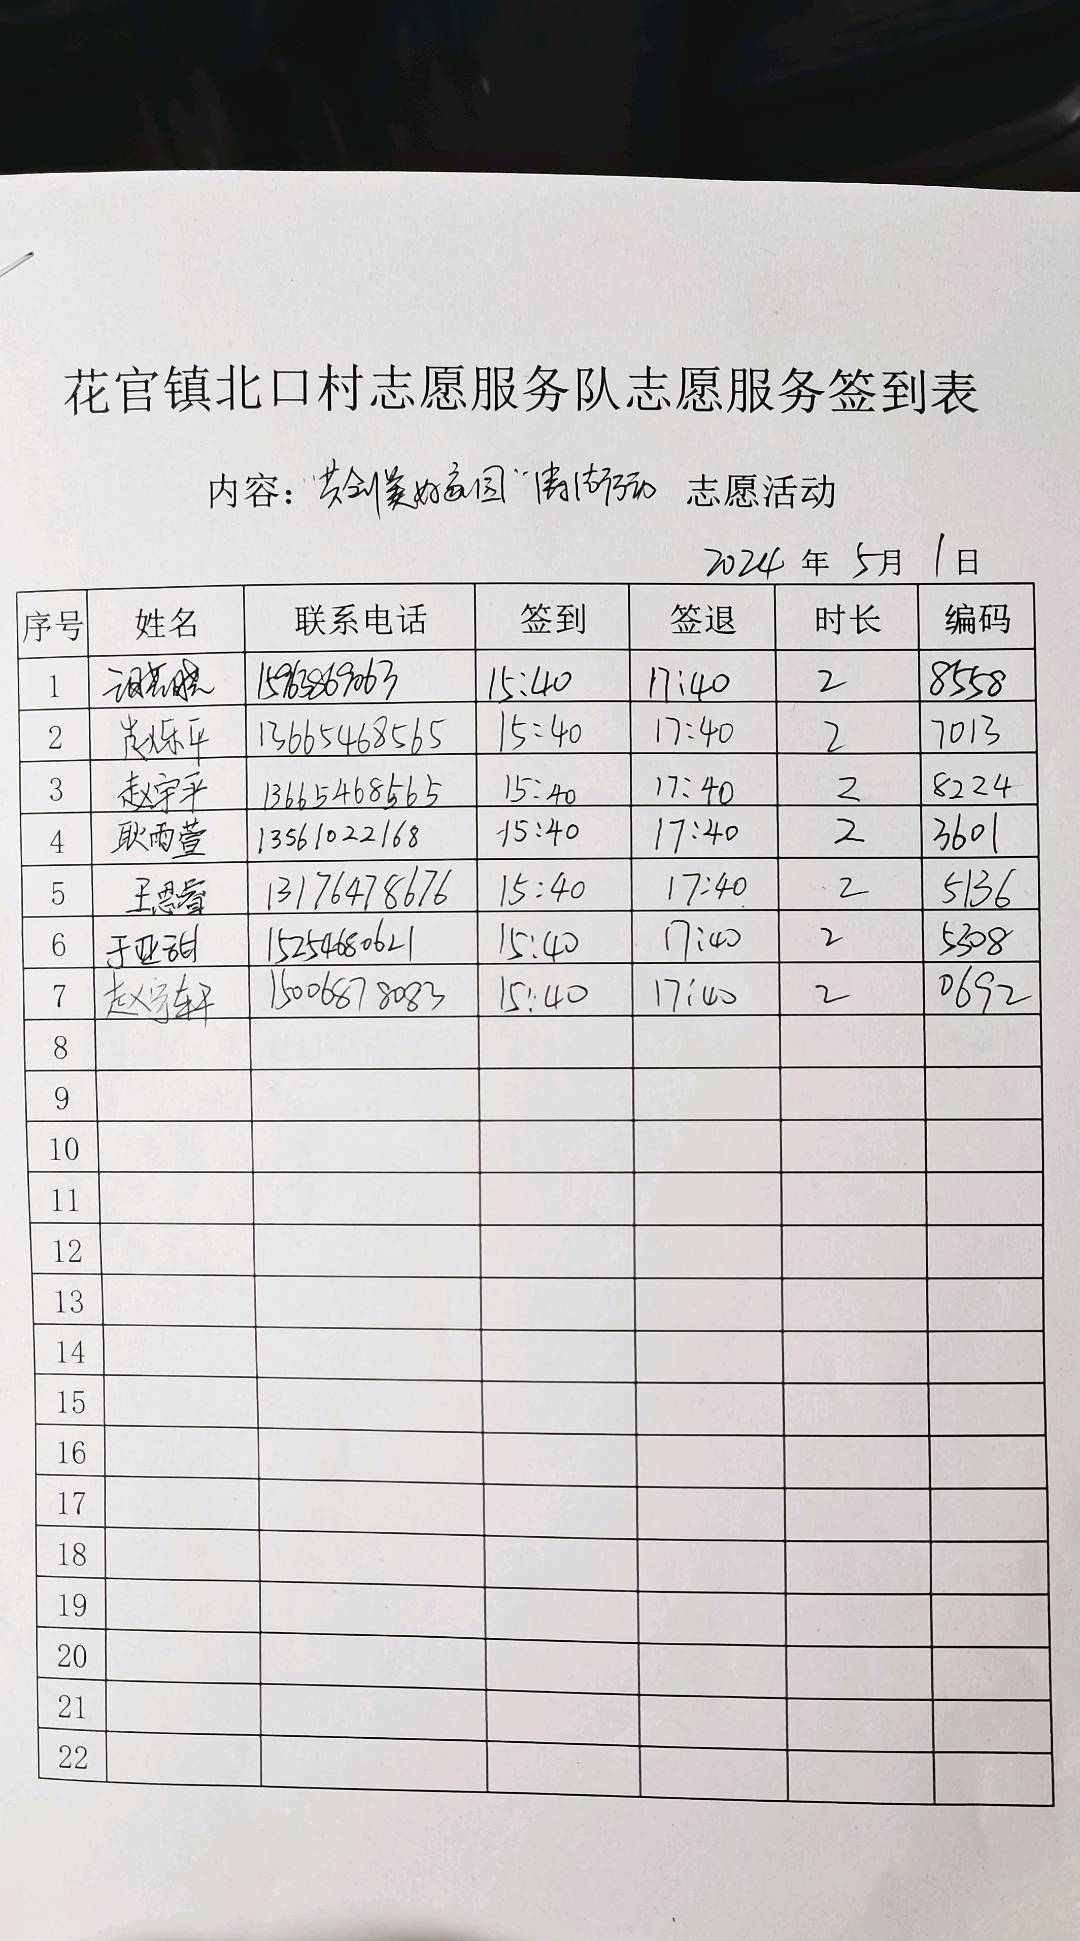 花官镇北口村志愿服务队志愿服务签到表
内容：“共创美好家园”清洁行动 志愿活动
2024 年 5月 1日
序号 姓名 联系电话 签到 签退 时长 编码
1 15963869063 15:40 17:40 2 8558
2 13665468565 15:40 17:40 2 7013
3 赵宇平 13665468565 15:40 17:40 2 8224
4 耿雨萱 13561022168 15:40 17:40 2 3601
5 王思睿 13176478676 15:40 17:40 2 5136
6 于亚甜 15254680621 15:40 17:40 2 5308
7 赵宇轩 15006878083 15:40 17:40 2 0692
8
9
10
11
12
13
14
15
16
17
18
19
20
21
22